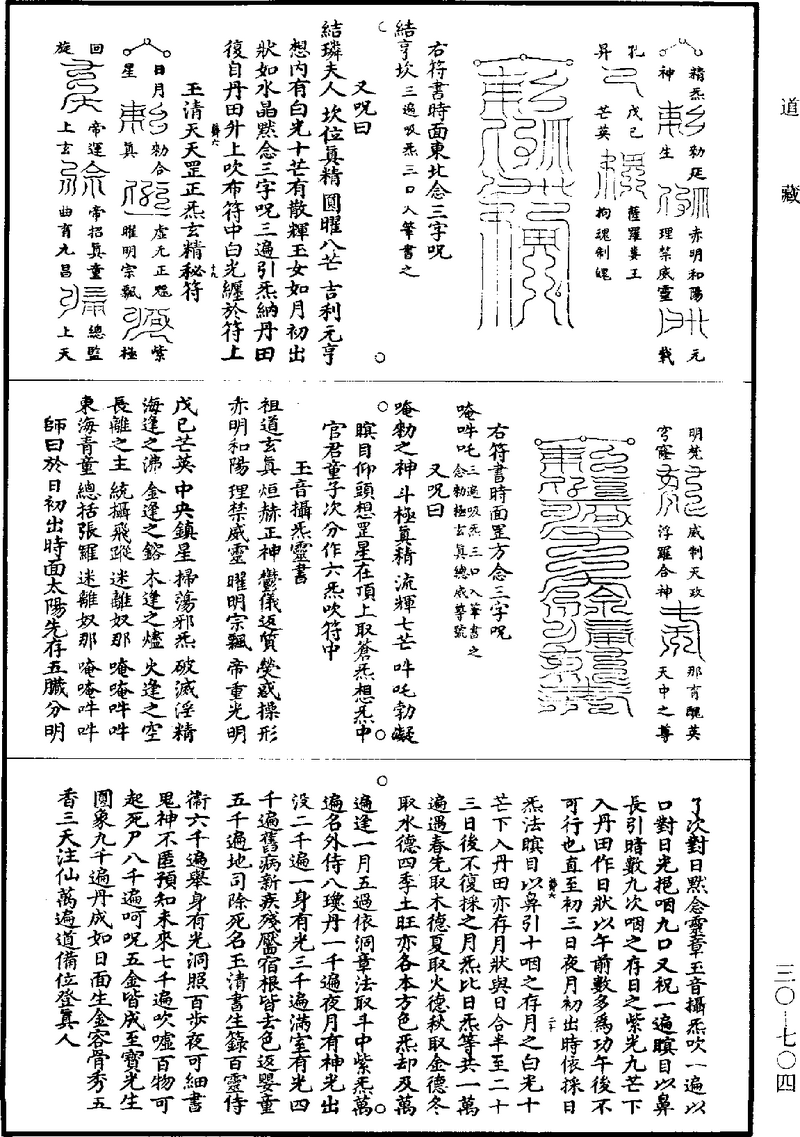 道藏
三〇—七〇四
精炁 勑延 赤明和陽 元
神 生 理禁威靈 載
孔 戊己 薩羅婁王
昇 芒英 拘魂制魄
右符書時面東北念三字呪
結亨坎三遍吸炁三口入筆書之
又呪曰
結璘夫人 坎位真精 圓曜八芒 吉利元亨
想內有白光十芒有散輝玉女如月初出
狀如水晶默念三字呪三遍引炁納丹田
復自丹田外上吹布符中白光纏於符上
玉清天天罡正炁玄精秘符
日月 勑合 虛无正 紫
星 真 曜明宗飄 極
回 帝運 帝招真童 總監
旋 上玄 曲育九昌 上天
明梵 威制天政 那育醜英
穹窿 浮羅合神 天中之尊
右符書時面罡方念三字呪
唵吽吒三遍吸炁三口入筆書之
念勑極玄真總威尊號
又呪曰
唵勑之神 斗極真精 流輝七芒 吽吒勃凝
瞑目仰頭想罡星在頂上取蒼炁想炁中
官君童子次分作六炁吹符中
玉音攝炁靈書
祖道玄真 烜赫正神 鬱儀返質 熒惑操形
赤明和陽 理禁威靈 曜明宗飄 帝重光明
戊己芒英 中央鎮星 掃蕩邪炁 破滅淫精
海逢之沸 金逢之鎔 木逢之爐 火逢之空
長離之主 統攝飛蹤 迷離奴那 唵唵吽吽
東海青童 總括張羅 迷離奴那 唵唵吽吽
師曰於日初出時面太陽先存五臟分明
了次對日默念靈章玉音攝炁吹一遍以
口對日光挹咽九口又祝一遍瞑目以鼻
長引暗數九次咽之存日之紫光九芒下
入丹田作日狀以午前數多為功午後不
可行也直至初三日夜月初出時依採日
炁法瞑目以鼻引十咽之存月之白光十
芒下入丹田亦存月狀與日合半至二十
三日後不復採之月炁比日炁等共一萬
遍遇春先取木德夏取火德秋取金德冬
取水德四季土旺亦各本方色炁却及萬
遍逢一月五過依洞章法取斗中紫炁萬
遍名外侍八瓊丹一千遍夜月有神光出
沒二千遍一身有光三千遍滿室有光四
千遍舊病新疾殘黶宿根皆去色返嬰童
五千遍地司除死名玉清書生錄百靈侍
衛六千遍舉身有光洞照百步夜可細書
鬼神不匿預知未來七千遍吹噓百物可
起死尸八千遍呵呪五金皆成至寶光生
圓象九千遍丹成如日面生金容骨秀五
香三天注仙萬遍道備位登真人